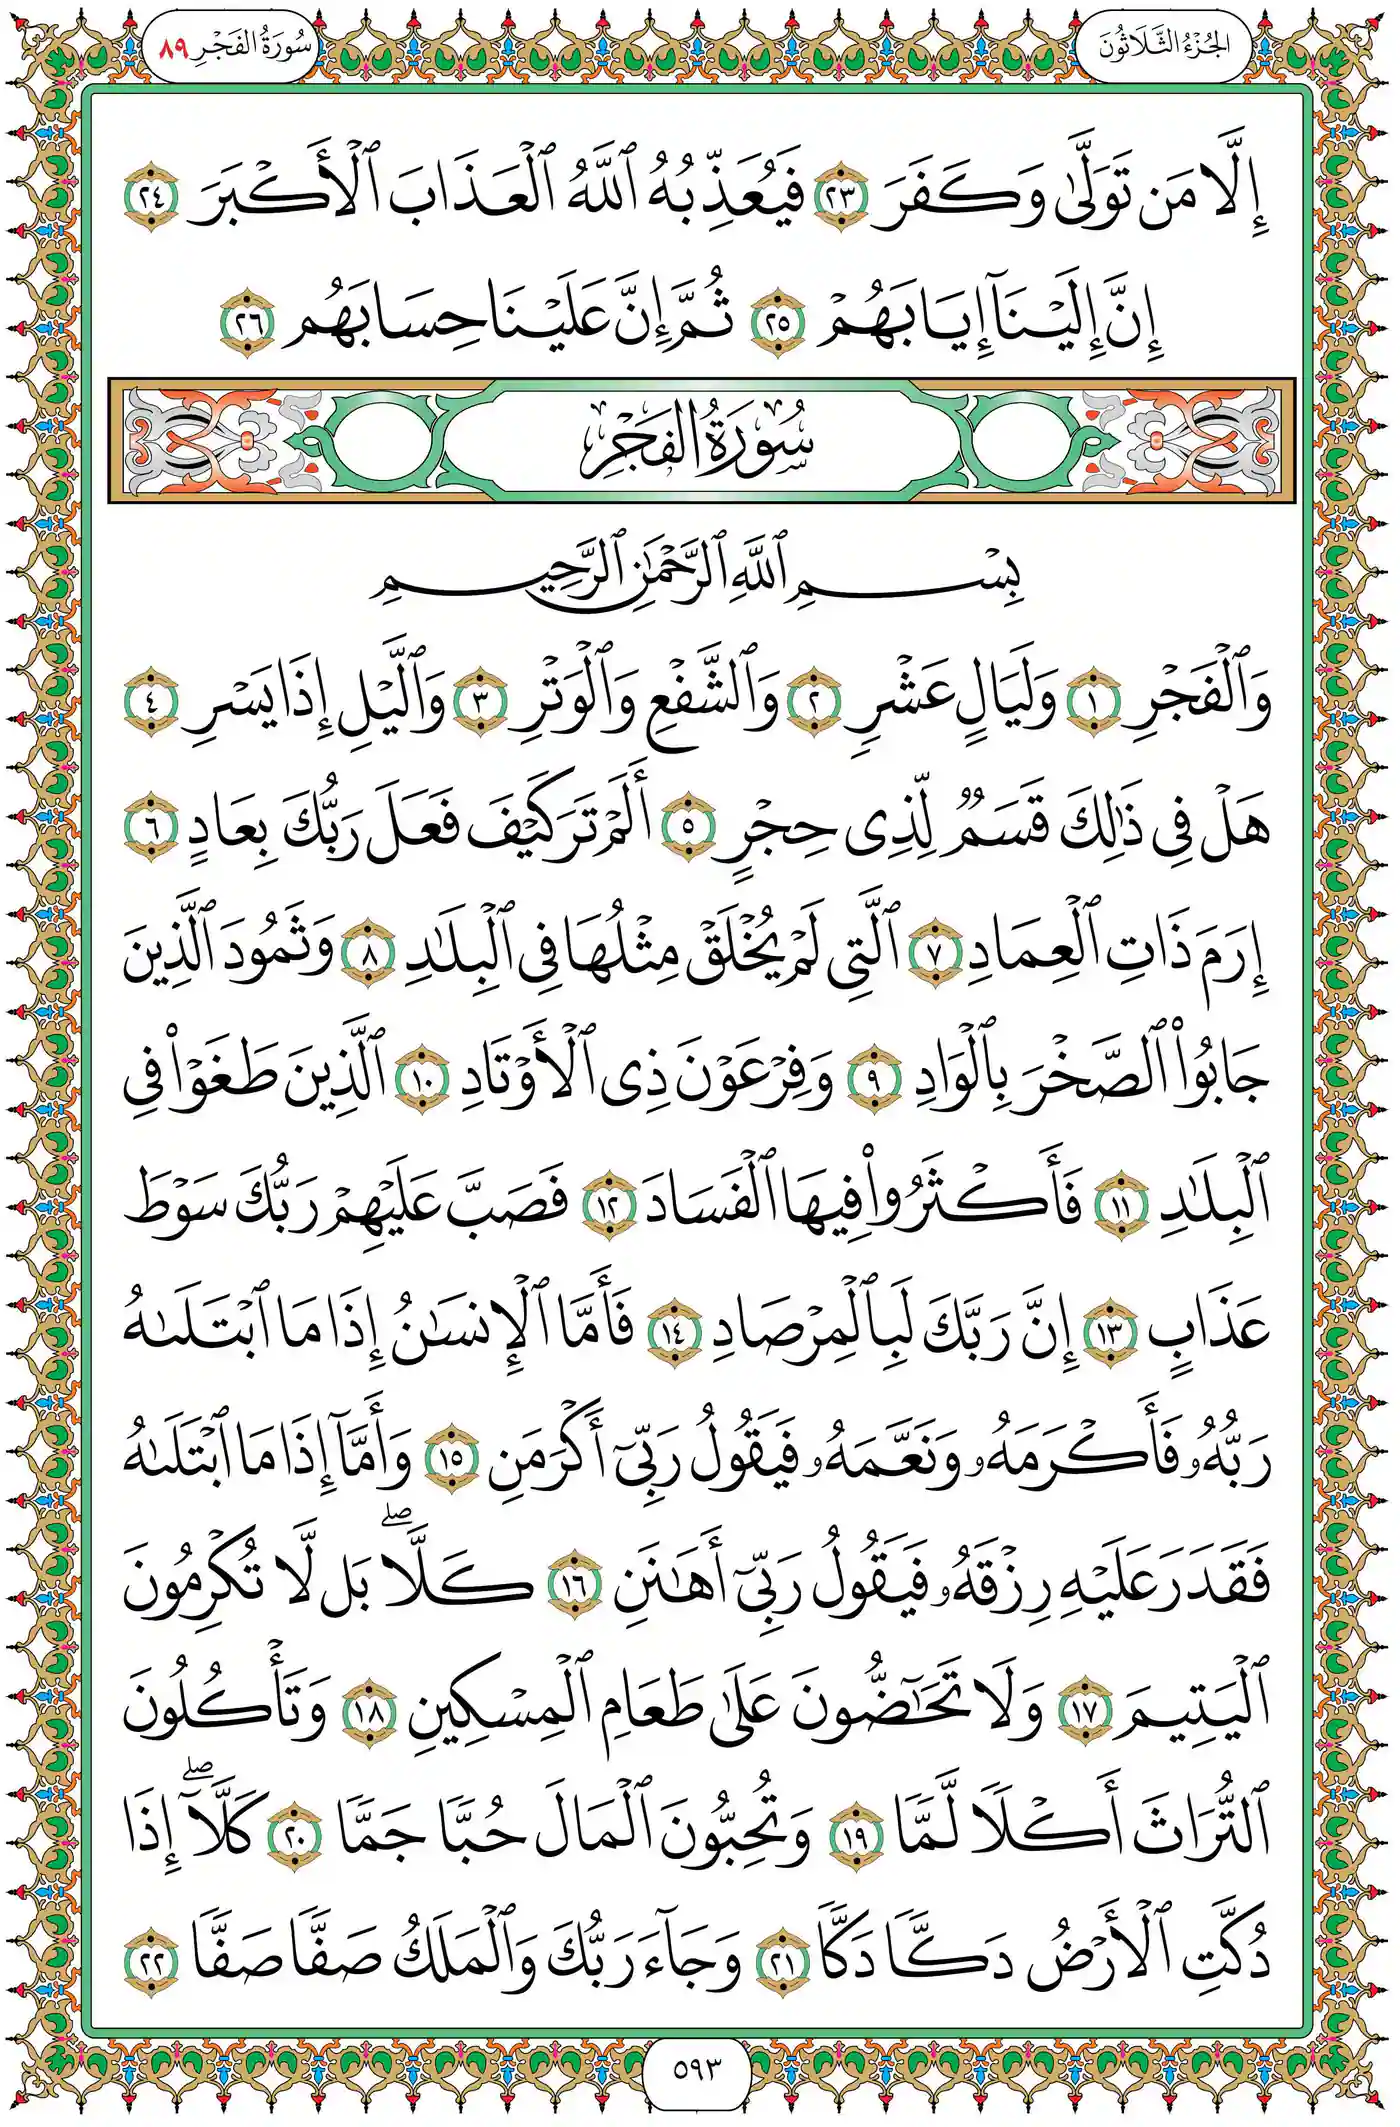 الجُزْءُ الثَّلَاثُونَ
سُورَةُ الفَجْرِ ٨٩
إِلَّا مَن تَوَلَّىٰ وَكَفَرَ ٢٣ فَيُعَذِّبُهُ ٱللَّهُ ٱلْعَذَابَ ٱلْأَكْبَرَ ٢٤
إِنَّ إِلَيْنَآ إِيَابَهُمْ ٢٥ ثُمَّ إِنَّ عَلَيْنَا حِسَابَهُم ٢٦
سُورَةُ الفَجْرِ
بِسْمِ ٱللَّهِ ٱلرَّحْمَٰنِ ٱلرَّحِيمِ
وَٱلْفَجْرِ ١ وَلَيَالٍ عَشْرٍ ٢ وَٱلشَّفْعِ وَٱلْوَتْرِ ٣ وَٱلَّيْلِ إِذَا يَسْرِ ٤
هَلْ فِى ذَٰلِكَ قَسَمٌ لِّذِى حِجْرٍ ٥ أَلَمْ تَرَ كَيْفَ فَعَلَ رَبُّكَ بِعَادٍ ٦
إِرَمَ ذَاتِ ٱلْعِمَادِ ٧ ٱلَّتِى لَمْ يُخْلَقْ مِثْلُهَا فِى ٱلْبِلَٰدِ ٨ وَثَمُودَ ٱلَّذِينَ
جَابُوا۟ ٱلصَّخْرَ بِٱلْوَادِ ٩ وَفِرْعَوْنَ ذِى ٱلْأَوْتَادِ ١٠ ٱلَّذِينَ طَغَوْا۟ فِى
ٱلْبِلَٰدِ ١١ فَأَكْثَرُوا۟ فِيهَا ٱلْفَسَادَ ١٢ فَصَبَّ عَلَيْهِمْ رَبُّكَ سَوْطَ
عَذَابٍ ١٣ إِنَّ رَبَّكَ لَبِٱلْمِرْصَادِ ١٤ فَأَمَّا ٱلْإِنسَٰنُ إِذَا مَا ٱبْتَلَىٰهُ
رَبُّهُۥ فَأَكْرَمَهُۥ وَنَعَّمَهُۥ فَيَقُولُ رَبِّىٓ أَكْرَمَنِ ١٥ وَأَمَّآ إِذَا مَا ٱبْتَلَىٰهُ
فَقَدَرَ عَلَيْهِ رِزْقَهُۥ فَيَقُولُ رَبِّىٓ أَهَٰنَنِ ١٦ كَلَّاۖ بَل لَّا تُكْرِمُونَ
ٱلْيَتِيمَ ١٧ وَلَا تَحَٰٓضُّونَ عَلَىٰ طَعَامِ ٱلْمِسْكِينِ ١٨ وَتَأْكُلُونَ
ٱلتُّرَاثَ أَكْلًا لَّمًّا ١٩ وَتُحِبُّونَ ٱلْمَالَ حُبًّا جَمًّا ٢٠ كَلَّآۖ إِذَا
دُكَّتِ ٱلْأَرْضُ دَكًّا دَكًّا ٢١ وَجَآءَ رَبُّكَ وَٱلْمَلَكُ صَفًّا صَفًّا ٢٢
٥٩٣